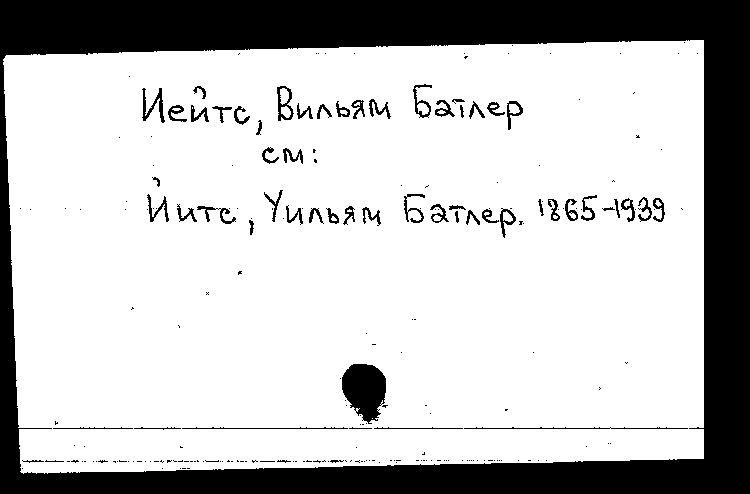 Иейтс, Вильям Батлер
см:
Йитс, Уильям Батлер. 1865-1939